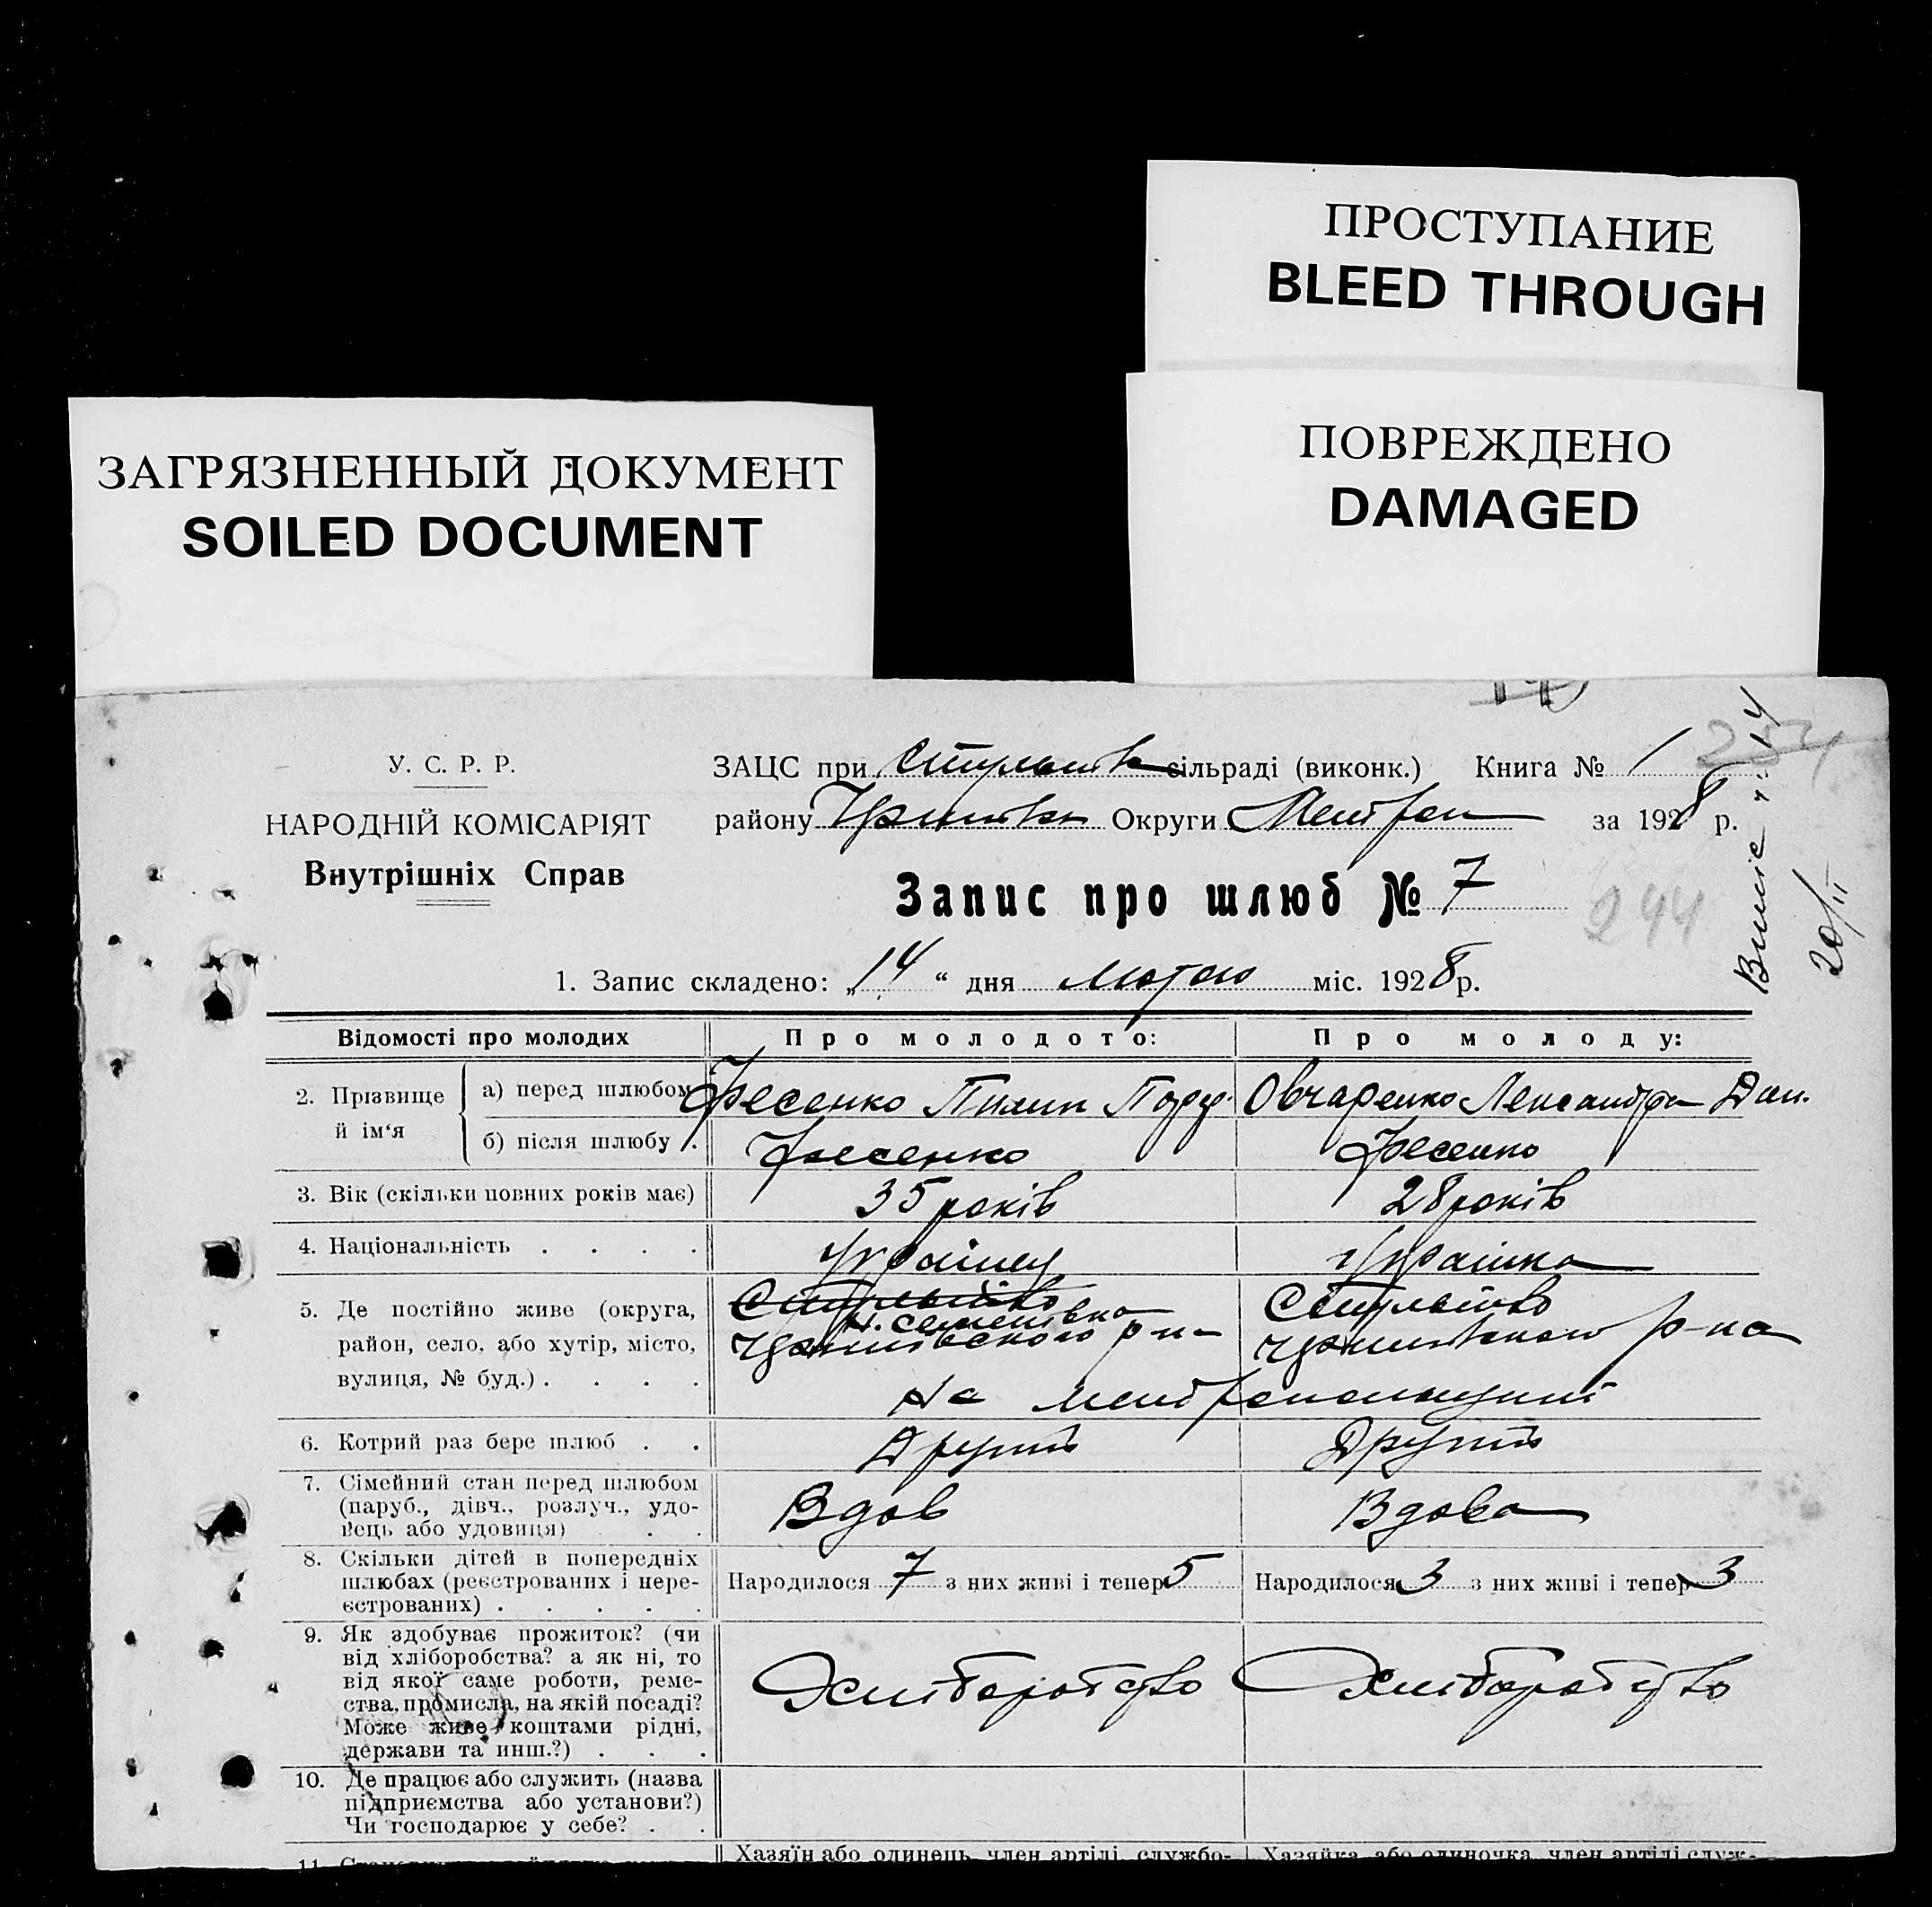 ПРОСТУПАНИЕ
BLEED THROUGH
ЗАГРЯЗНЕННЫЙ ДОКУМЕНТ
SOILED DOCUMENT
ПОВРЕЖДЕНО
DAMAGED
У. С. Р. Р.
НАРОДНІЙ КОМІСАРІЯТ
Внутрішніх Справ
ЗАЦС при сільраді (виконк.) Книга № 1
району Округи за 1928 р.
Запис про шлюб № 7
244
20/II
1. Запис складено: „14“ дня лютого міс. 1928 р.
Відомості про молодих
Про молодого:
Про молоду:
2. Прізвище й ім‘я
а) перед шлюбом
Фесенко Пилип
Овчаренко Лександра Дан.
б) після шлюбу .
Фесенко
Фесенко
3. Вік (скільки повних років має)
35 років
28 років
4. Національність . . . .
Українец
Українка
5. Де постійно живе (округа,
район, село, або хутір, місто,
вулиця, № буд.) . . . .
Н. Семенівка
р-на
р-на
6. Котрий раз бере шлюб . .
Другий
Другий
7. Сімейний стан перед шлюбом
(паруб., дівч., розлуч., удо-
вець або удовиця) . .
Вдов
Вдова
8. Скільки дітей в попередніх
шлюбах (реєстрованих і нере-
єстрованих) . . . . .
Народилося 7 з них живі і тепер 5
Народилося 3 з них живі і тепер 3
9. Як здобуває прожиток? (чи
від хліборобства? а як ні, то
від якої саме роботи, реме-
ства, промисла, на якій посаді?
Може живе коштами рідні,
держави та инш.?) . . .
Хліборобство
Хліборобство
10. Де працює або служить (назва
підприємства або установи?)
Чи господарює у себе? . .
11.
Хазяїн або одинець, член артілі, службо-
Хазяйка або одиночка, член артілі служ-